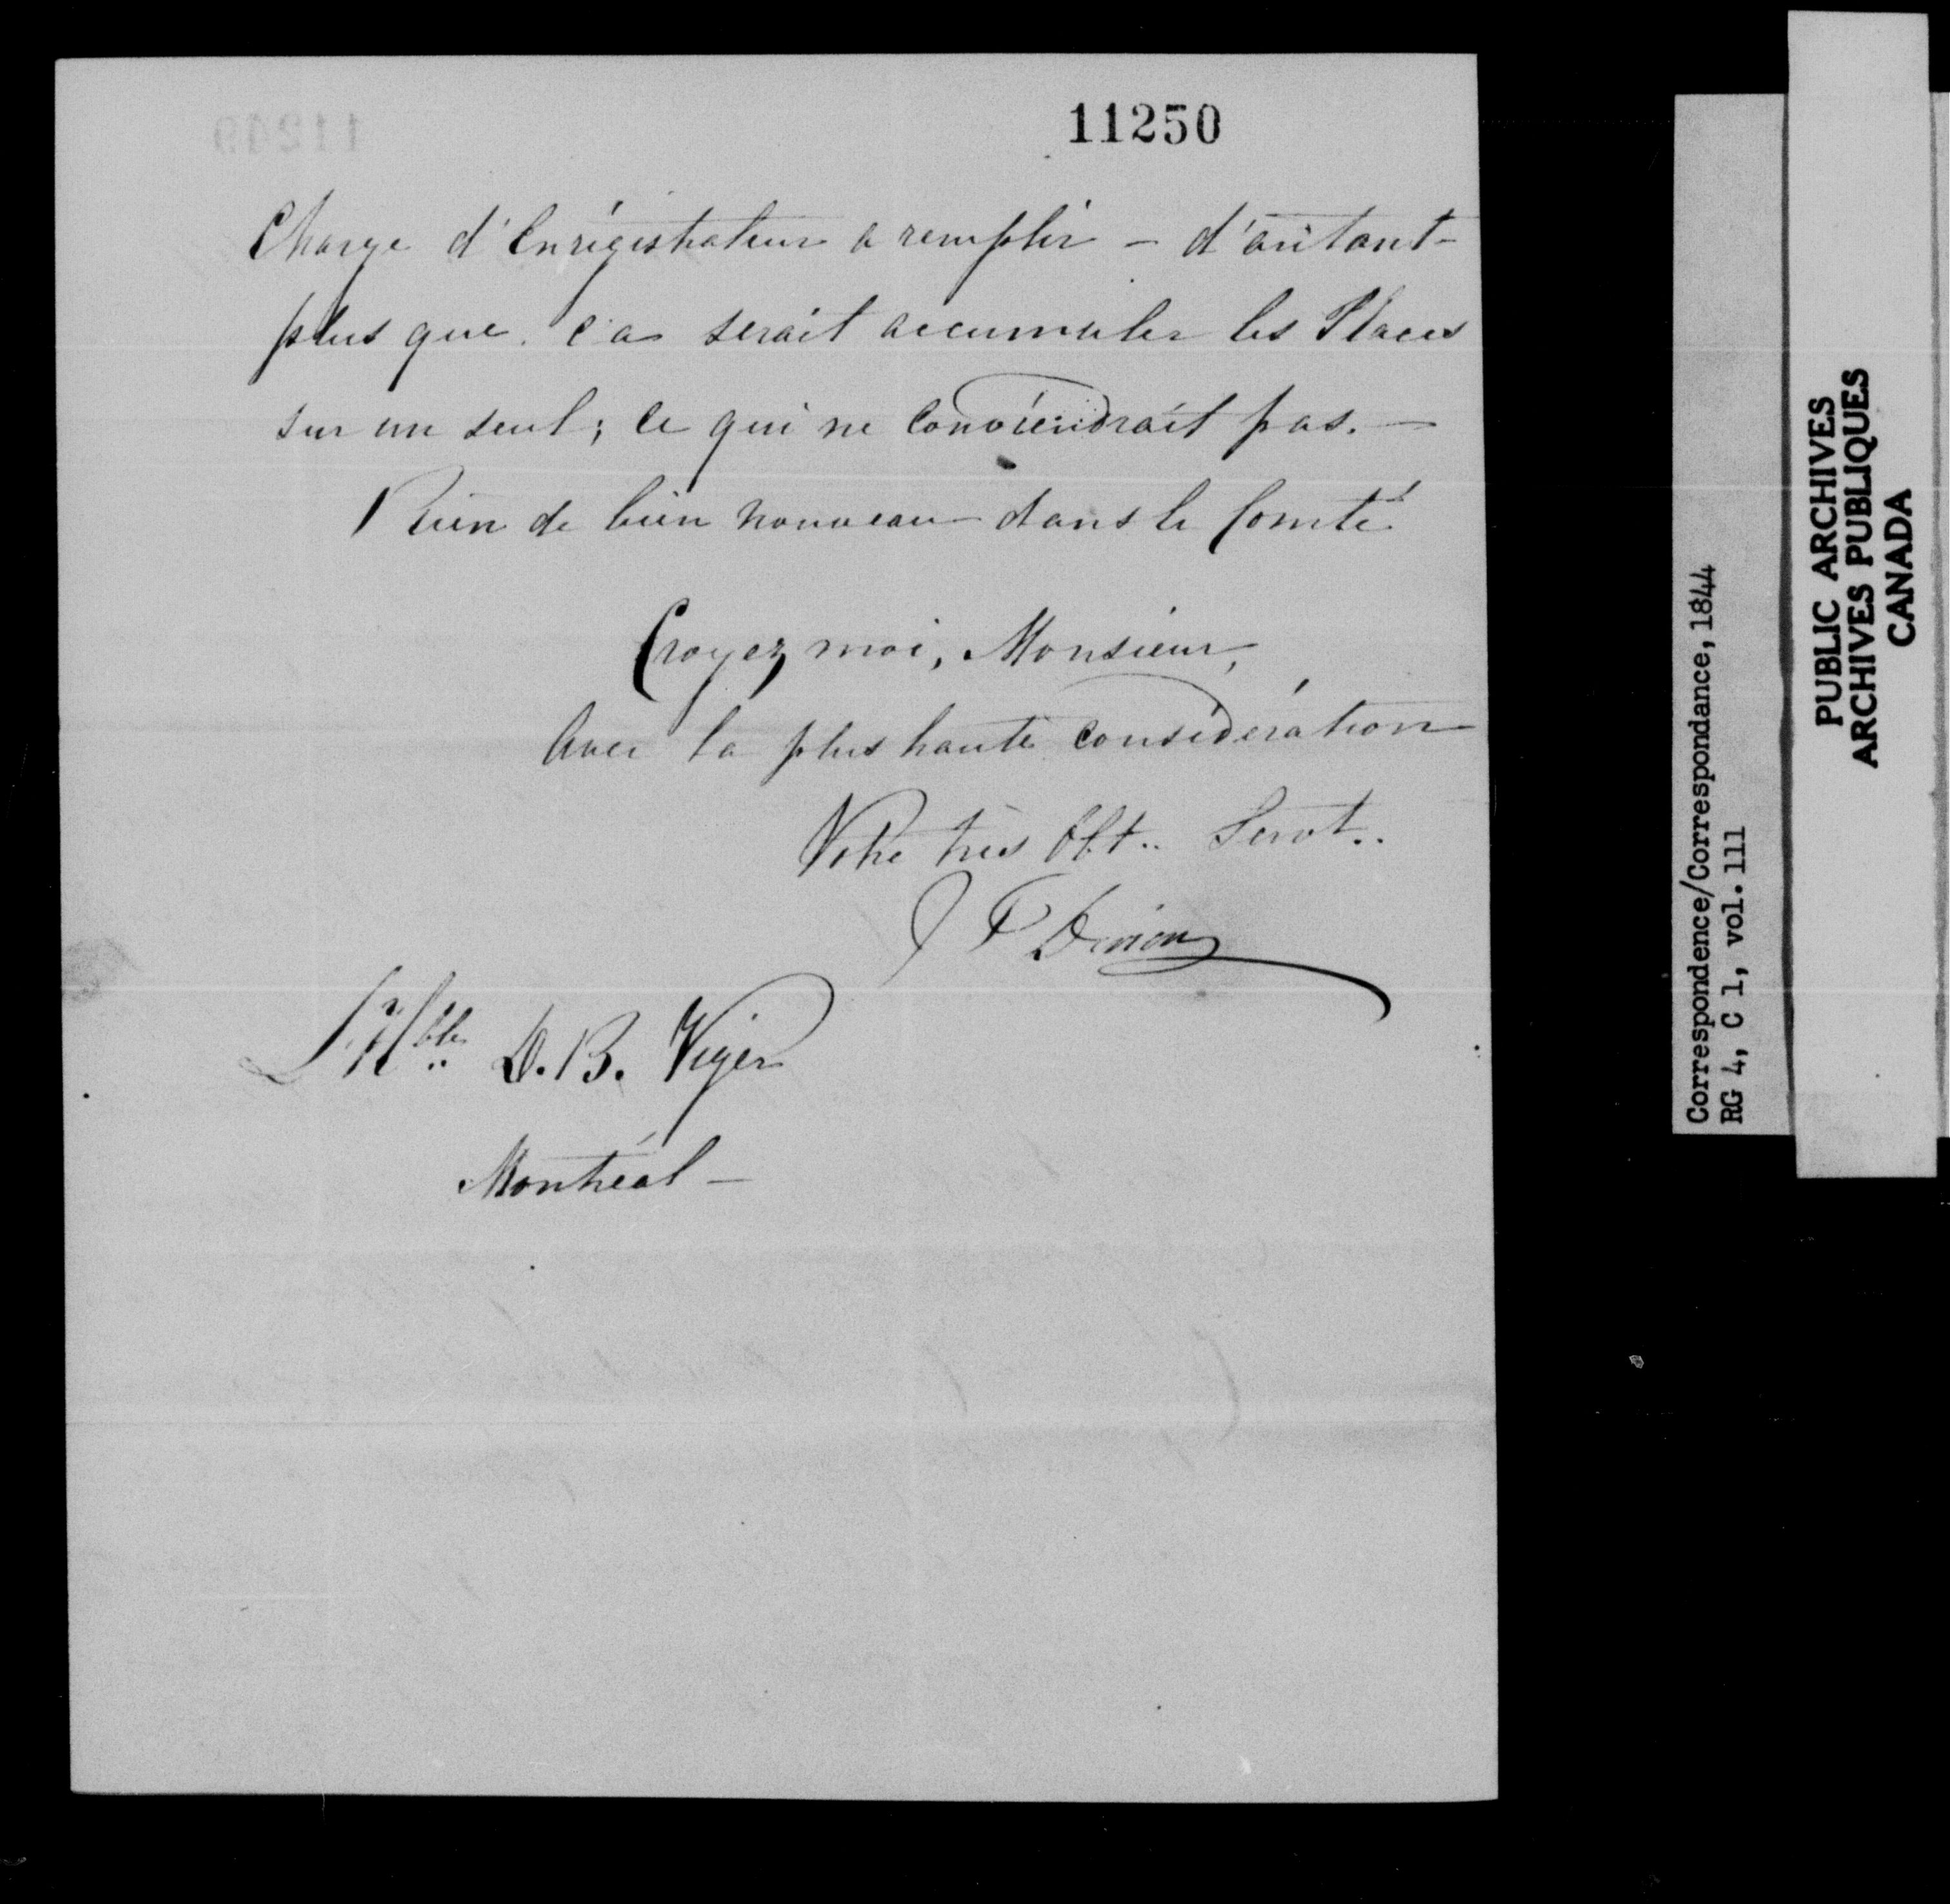 11250
Charge d'Enrégistrateur a remplir – d'autant
plus que ca serait accumuler les Places
sur un seul ; ce qui ne conviendrait pas. –
Rien de bien nouveau dans le Comté
Croyez moi, Monsieur,
Avec la plus haute considération
Votre très Obt.. Servt..
J
L'Hble D. B. Viger
Montréal –
Correspondence/Correspondance, 1844
RG 4, C 1, vol. 111
PUBLIC ARCHIVES
ARCHIVES PUBLIQUES
CANADA